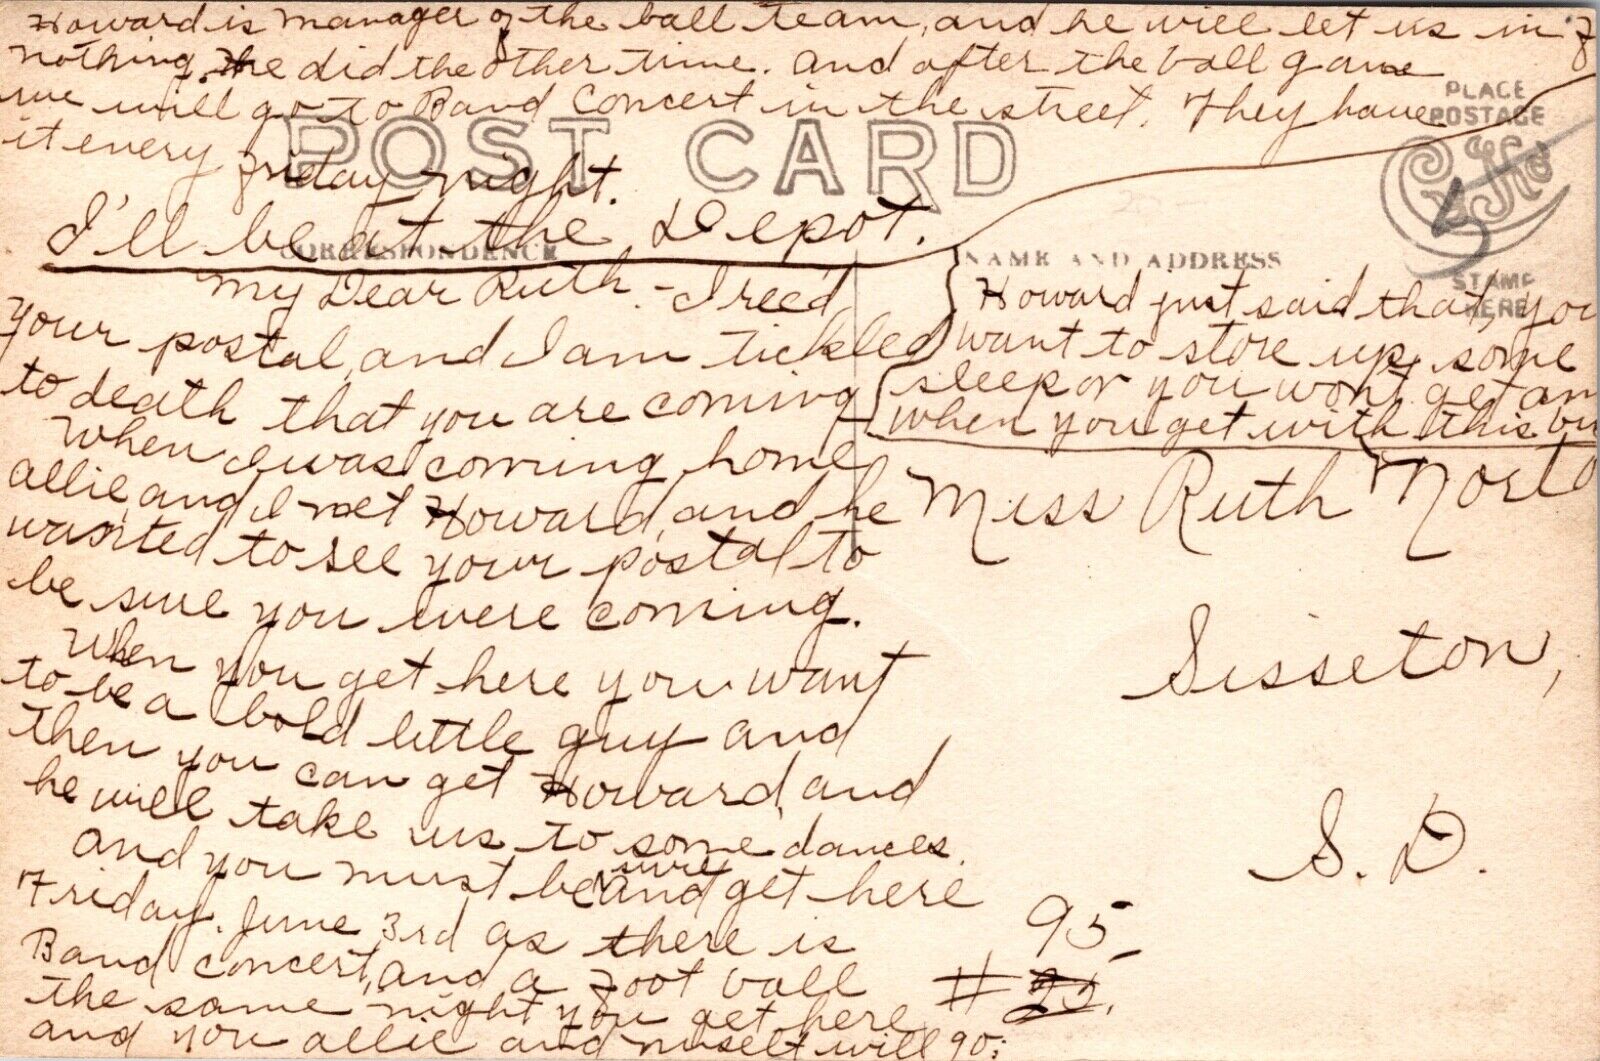 Howard is manager of the ball team, and he will let us in f
nothing. He did the other time. And after the ball game
we will go to Band Concert in the street. They have
it every friday night.
I'll be at the Depot.
POST CARD
PLACE
POSTAGE
STAMP
HERE
CORRESPONDENCE
NAME AND ADDRESS
My Dear Ruth - I rec'd
your postal, and I am tickled
to death that you are coming
When I was coming home
Allie, and I met Howard, and he
wanted to see your postal to
be sure you were coming.
When you get here you want
to be a bold little guy and
then you can get Howard, and
he will take us to some dances.
And you must be sure and get here
Friday. June 3rd as there is
Band concert, and a Foot ball
the same night you get here
and you Allie and myself will go:
Howard just said that, you
want to store up, some
sleep or you won't get an
when you get with this bu
Miss Ruth
Sisseton,
S. D.
95